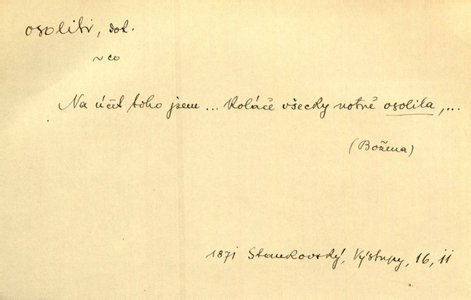 osoliti, dok.
~ co
Na účet toho jsem ... koláče všecky notně osolila, ...
(Božena)
1871 Stankovský, Výstupy, 16, ii